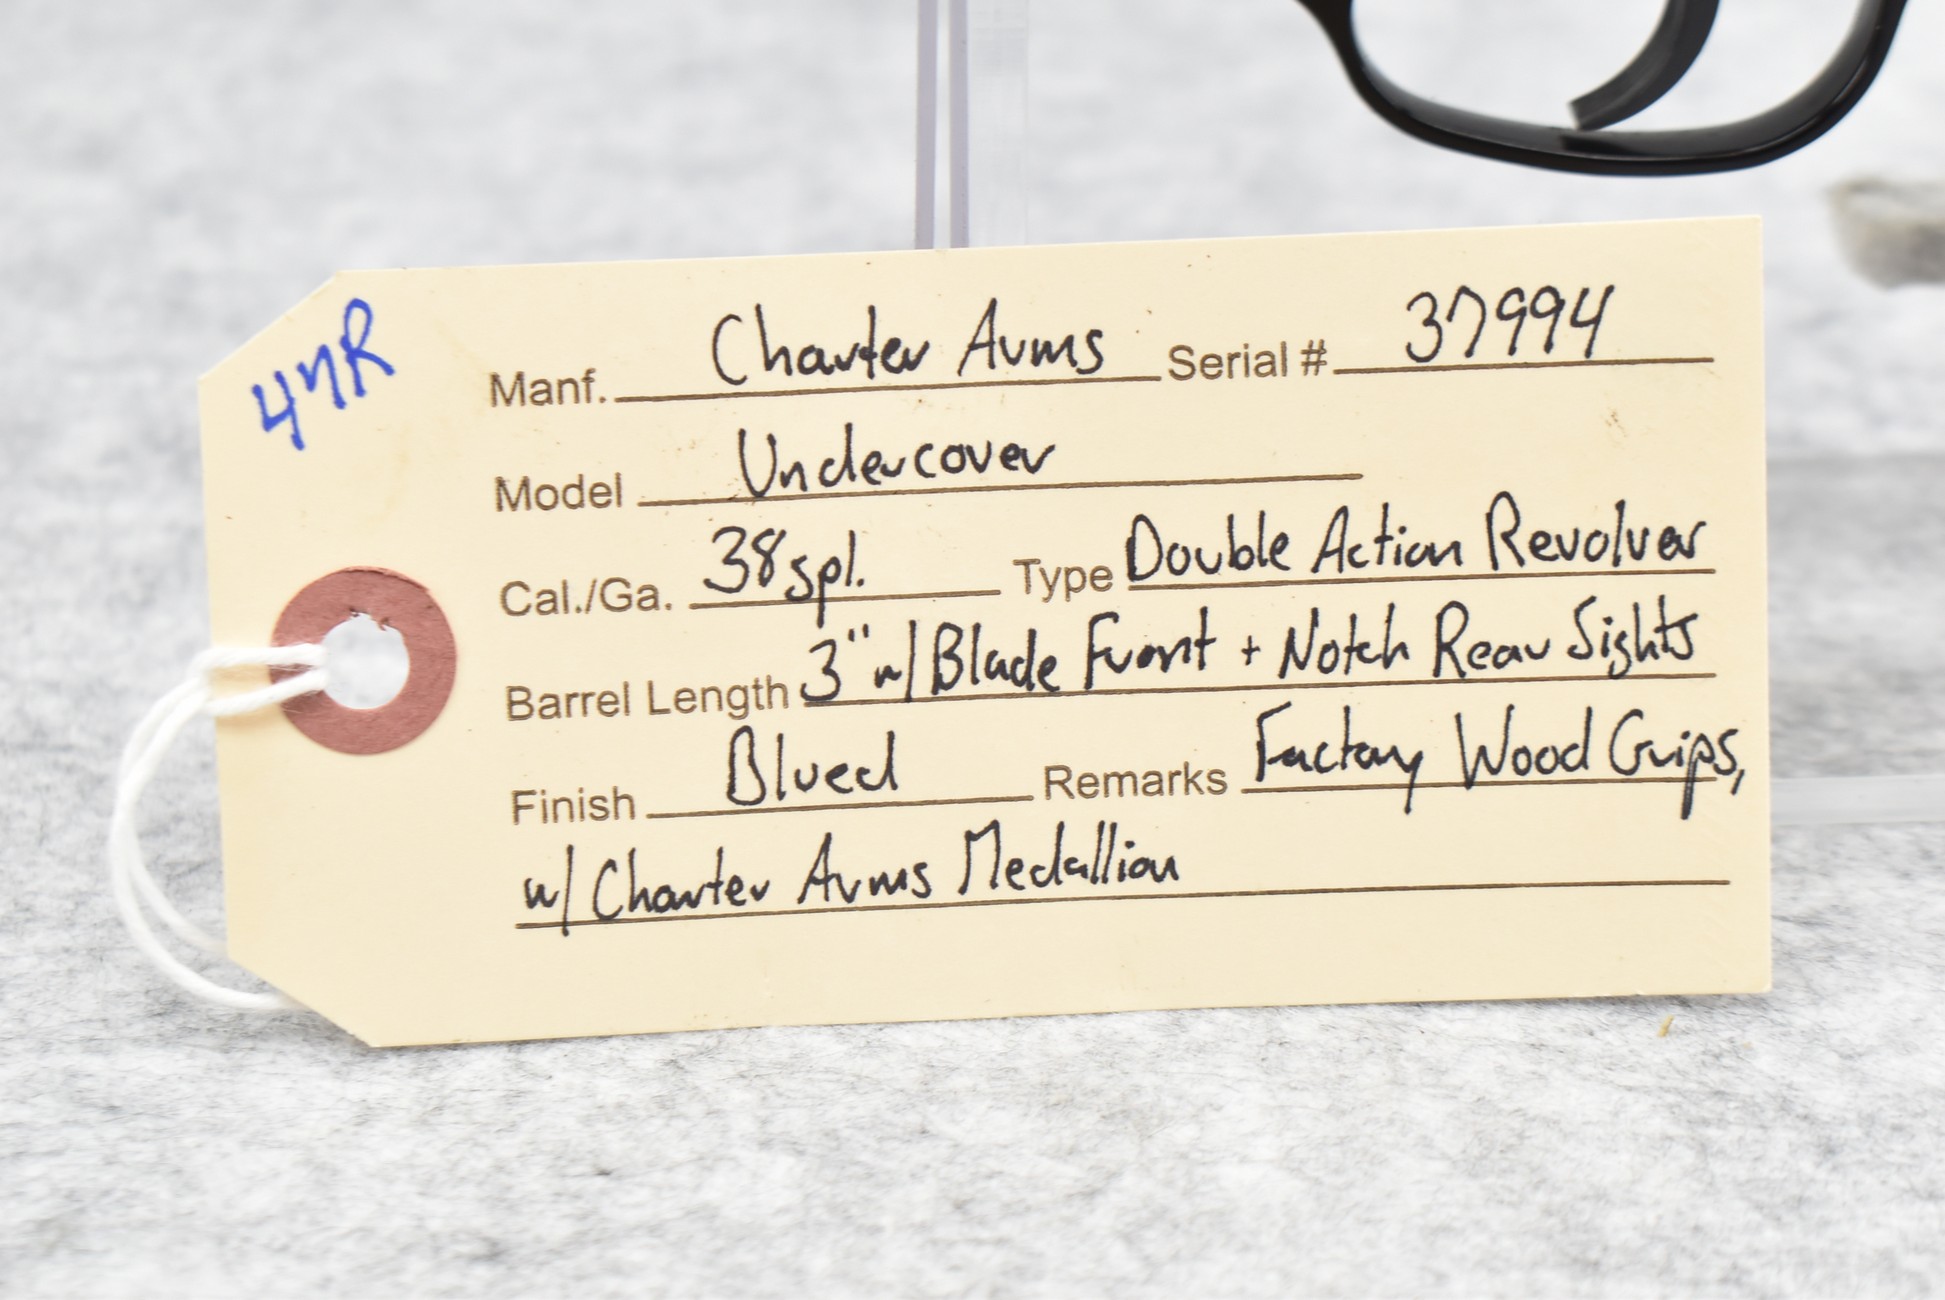 47R
Manf. Charter Arms Serial # 37994
Model Undercover
Cal./Ga. 38 spl. Type Double Action Revolver
Barrel Length 3" w/ Blade Front + Notch Rear Sights
Finish Blued Remarks Factory Wood Grips,
w/ Charter Arms Medallion